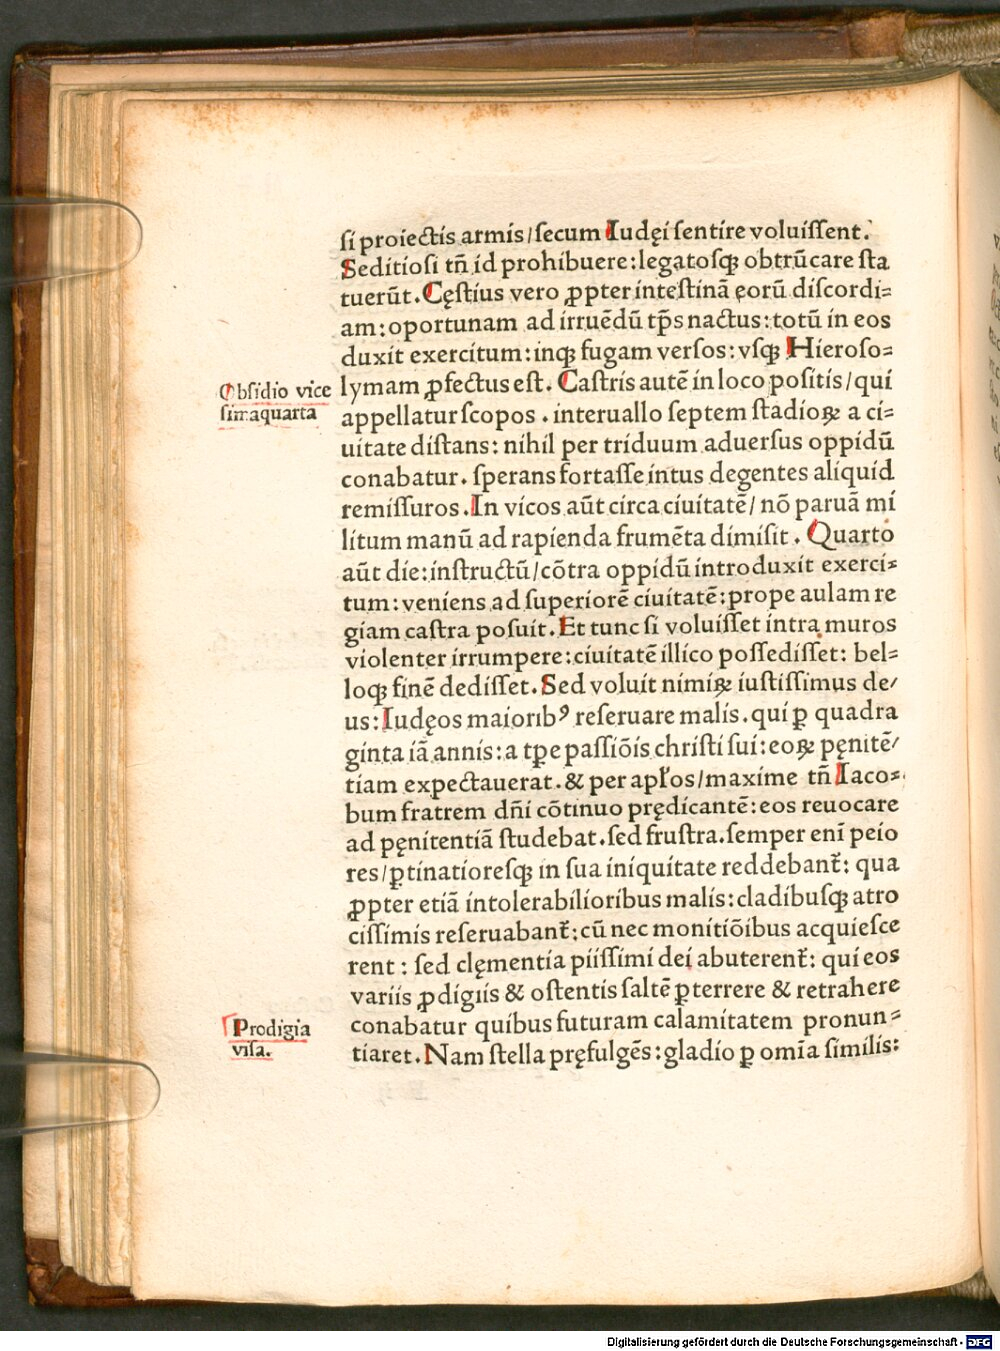 ſi proiectis armis/ſecum Iudęi ſentire voluiſſent.
Seditioſi tñ id prohibuere:legatoſqꝫ obtrūcare ſta
tuerūt.Cęſtius vero ꝓpter inteſtinā eorū diſcordi=
am:oportunam ad irruēdū tp̄s nactus:totū in eos
duxit exercitum:inqꝫ fugam verſos:vſqꝫ Hieroſo=
Obſidio vice
ſimaquarta
lymam ꝓfectus eſt. Caſtris autē in loco poſitis/qui
appellatur ſcopos . interuallo ſeptem ſtadioꝝ a ci=
uitate diſtans: nihil per triduum aduerſus oppidū
conabatur. ſperans fortaſſe intus degentes aliquid
remiſſuros.In vicos aūt circa ciuitatē/ nō paruā mi
litum manū ad rapienda frumēta dimiſit . Quarto
aūt die:inſtructū/cōtra oppidū introduxit exerci=
tum:veniens ad ſuperiorē ciuitatē:prope aulam re
giam caſtra poſuit.Et tunc ſi voluiſſet intra muros
violenter irrumpere:ciuitatē illico poſſediſſet: bel=
loqꝫ finē dediſſet.Sed voluit nimiꝝ iuſtiſſimus de/
us:Iudęos maioribꝰ reſeruare malis.qui ꝑ quadra
ginta iā annis:a tꝑe paſſiōis chriſti ſui:eoꝝ pęnitē/
tiam expectauerat.& per apłos/maxime tñ Iaco=
bum fratrem dñi cōtinuo prędicantē:eos reuocare
ad pęnitentiā ſtudebat.ſed fruſtra.ſemper eni̅ peio
res/ꝑtinatioreſqꝫ in ſua iniquitate reddebant̄: qua
ꝓpter etiā intolerabilioribus malis:cladibuſqꝫ atro
ciſſimis reſeruabant̄:cū nec monitiōibus acquieſce
rent : ſed clęmentia piiſſimi dei abuterent̄: qui eos
variis ꝓdigiis & oſtentis ſaltē ꝑterrere & retrahere
Prodigia
viſa.
conabatur quibus futuram calamitatem pronun=
tiaret.Nam ſtella pręfulgēs:gladio ꝑ omi̅a ſimilis:
Digitalisierung gefördert durch die Deutsche Forschungsgemeinschaft - DFG